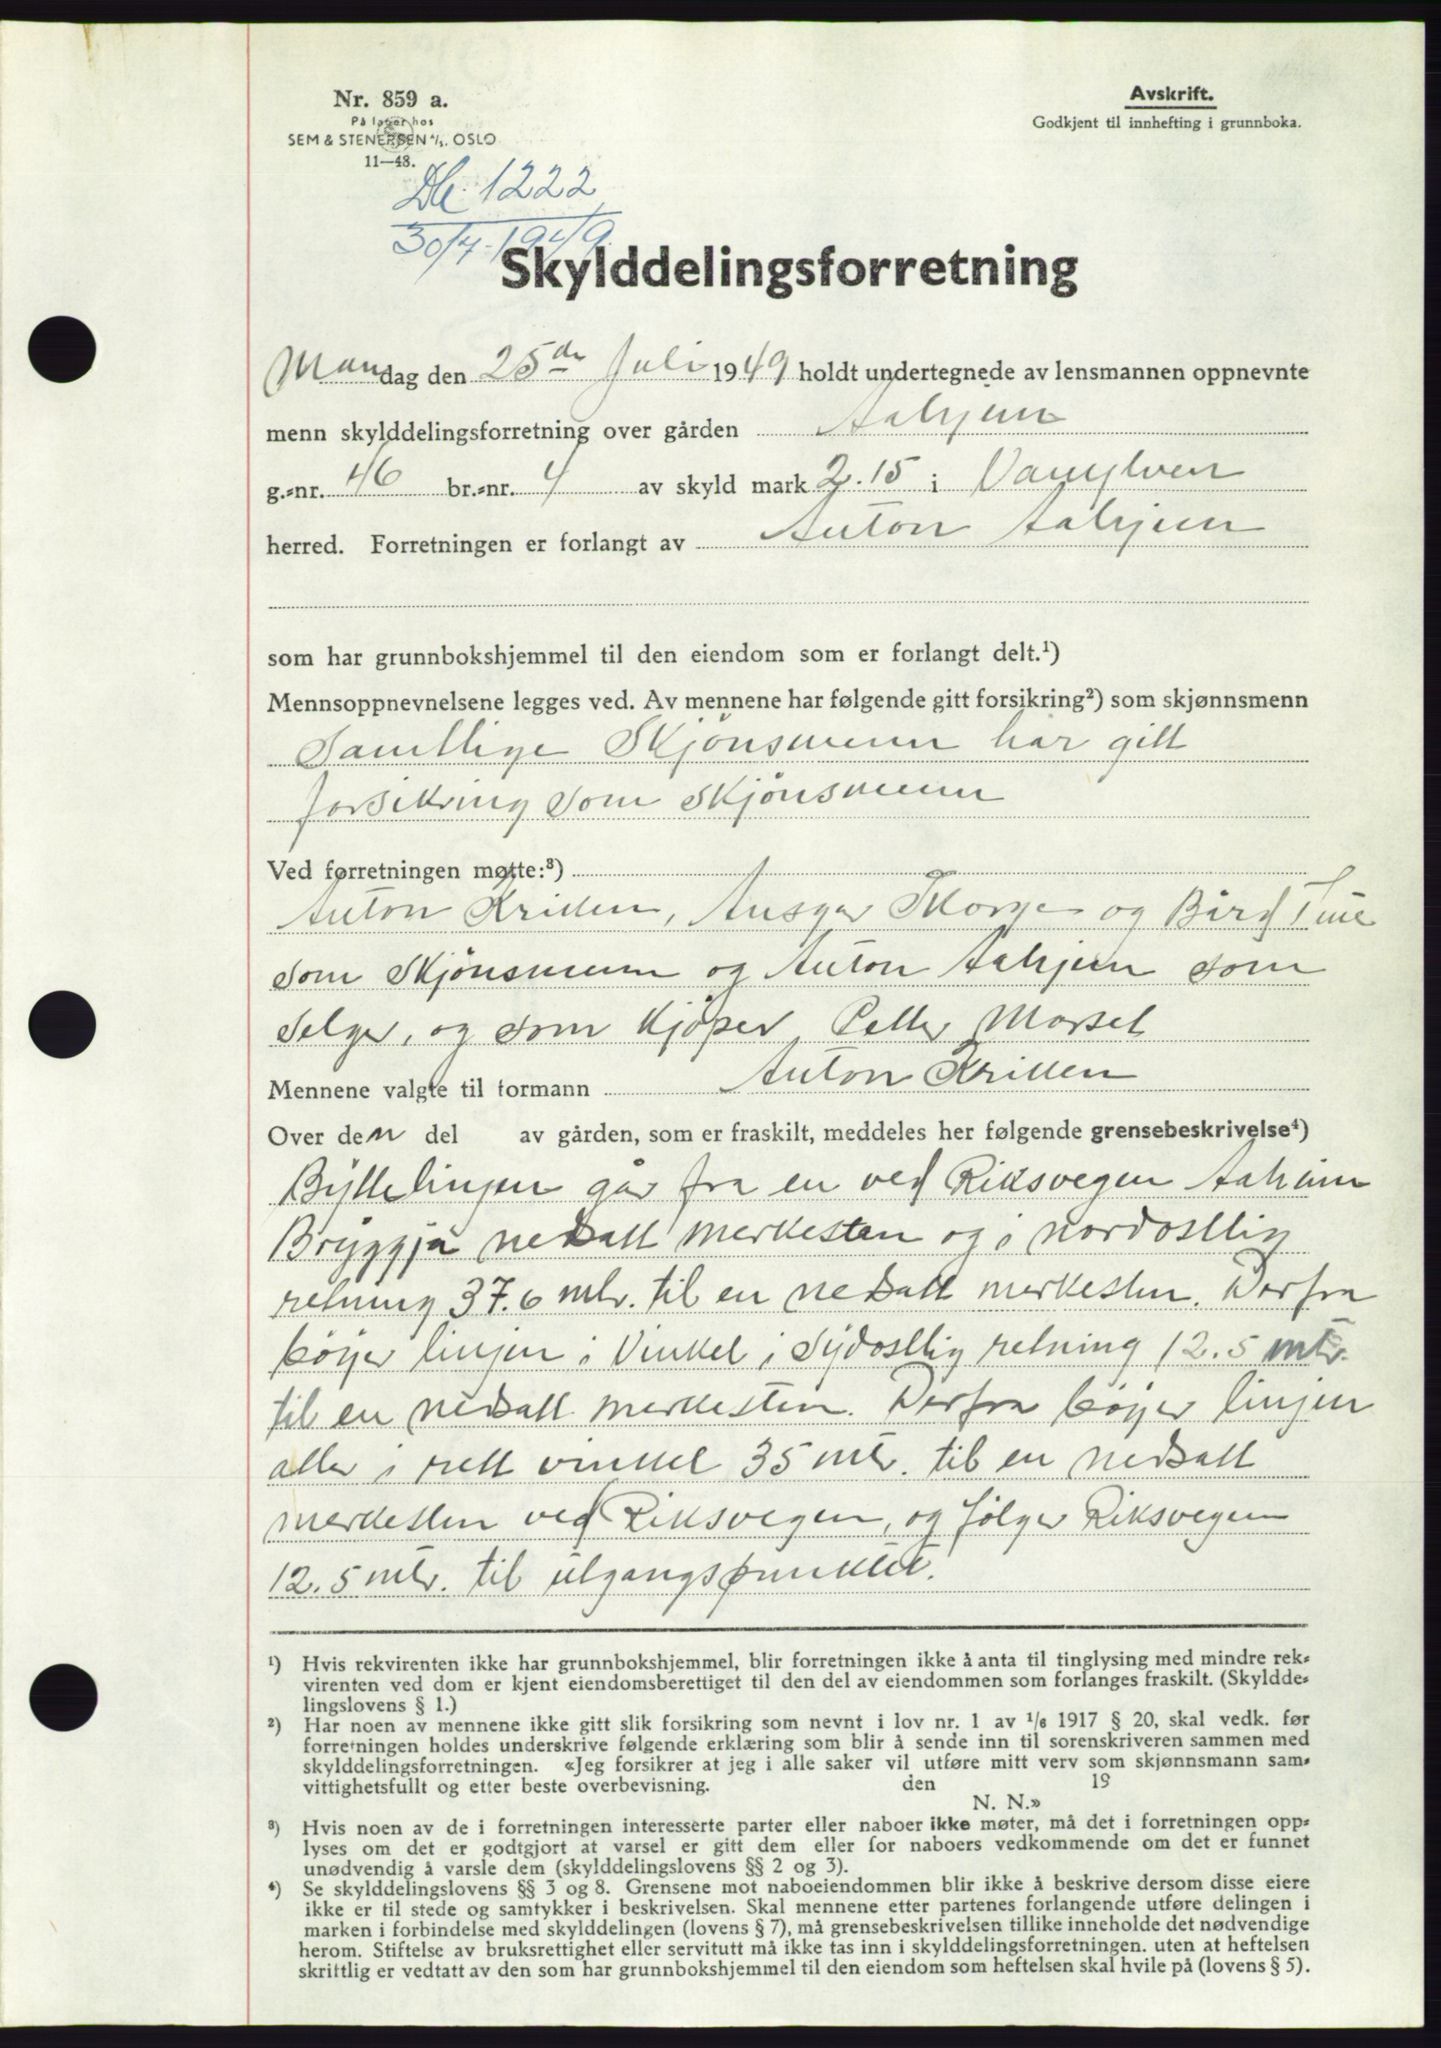 Nr. 859 a.
På lager hos
SEM & STENERSEN A/S. OSLO
11—48.
Avskrift.
Godkjent til innhefting i grunnboka.
Db. 1222
30/7-1949.
Skylddelingsforretning
Mandag den 25de Juli 1949 holdt undertegnede av lensmannen oppnevnte
menn skylddelingsforretning over gården Aahjem
g.-nr. 46 br.-nr. 4 av skyld mark 2.15 i Vanylven
herred. Forretningen er forlangt av Anton Aahjem
som har grunnbokshjemmel til den eiendom som er forlangt delt.¹)
Mennsoppnevnelsene legges ved. Av mennene har følgende gitt forsikring²) som skjønnsmenn
Samtlige Skjönsmenn har gitt
forsikring som skjönsmenn
Ved forretningen møtte:³)
Anton Krillen, Ansgar Skorge og Bård Tue
som Skjönsmenn og Anton Aahjem som
Selger, og som Kjöper Petter Morset
Mennene valgte til formann Anton Krillen
Over den del av gården, som er fraskilt, meddeles her følgende grensebeskrivelse⁴)
Byttelinjen går fra en ved Riksvegen Aaheim
Bryggja nedsatt merkesten og i nordostlig
retning 37.6 mtr. til en nedsatt merkesten. Derfra
böyer linjen i Vinkel i Sydostlig retning 12.5 mtr.
til en nedsatt merkesten. Derfra böyer linjen
atter i rett vinkel 35 mtr. til en nedsatt
merkesten ved Riksvegen, og fölger Riksvegen
12.5 mtr. til utgangspunktet.
¹) Hvis rekvirenten ikke har grunnbokshjemmel, blir forretningen ikke å anta til tinglysing med mindre rek-
virenten ved dom er kjent eiendomsberettiget til den del av eiendommen som forlanges fraskilt. (Skyldde-
lingslovens § 1.)
²) Har noen av mennene ikke gitt slik forsikring som nevnt i lov nr. 1 av 1/6 1917 § 20, skal vedk. før
forretningen holdes underskrive følgende erklæring som blir å sende inn til sorenskriveren sammen med
skylddelingsforretningen. «Jeg forsikrer at jeg i alle saker vil utføre mitt verv som skjønnsmann sam-
vittighetsfullt og etter beste overbevisning. den 19
N. N.»
³) Hvis noen av de i forretningen interesserte parter eller naboer ikke møter, må det i forretningen opp-
lyses om det er godtgjort at varsel er gitt dem eller for naboers vedkommende om det er funnet
unødvendig å varsle dem (skylddelingslovens §§ 2 og 3).
⁴) Se skylddelingslovens §§ 3 og 8. Grensene mot naboeiendommen blir ikke å beskrive dersom disse eiere
ikke er til stede og samtykker i beskrivelsen. Skal mennene etter partenes forlangende utføre delingen i
marken i forbindelse med skylddelingen (lovens § 7), må grensebeskrivelsen tillike inneholde det nødvendige
herom. Stiftelse av bruksrettighet eller servitutt må ikke tas inn i skylddelingsforretningen. uten at heftelsen
skriftlig er vedtatt av den som har grunnbokshjemmel til den eiendom som heftelsen skal hvile på (lovens § 5).